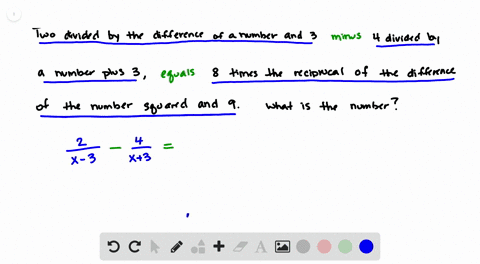 Two divided by the difference of a number and 3 minus 4 divided by
a number plus 3, equals 8 times the reciprocal of the difference
of the number squared and 9. What is the number?
2/(x-3) - 4/(x+3) =